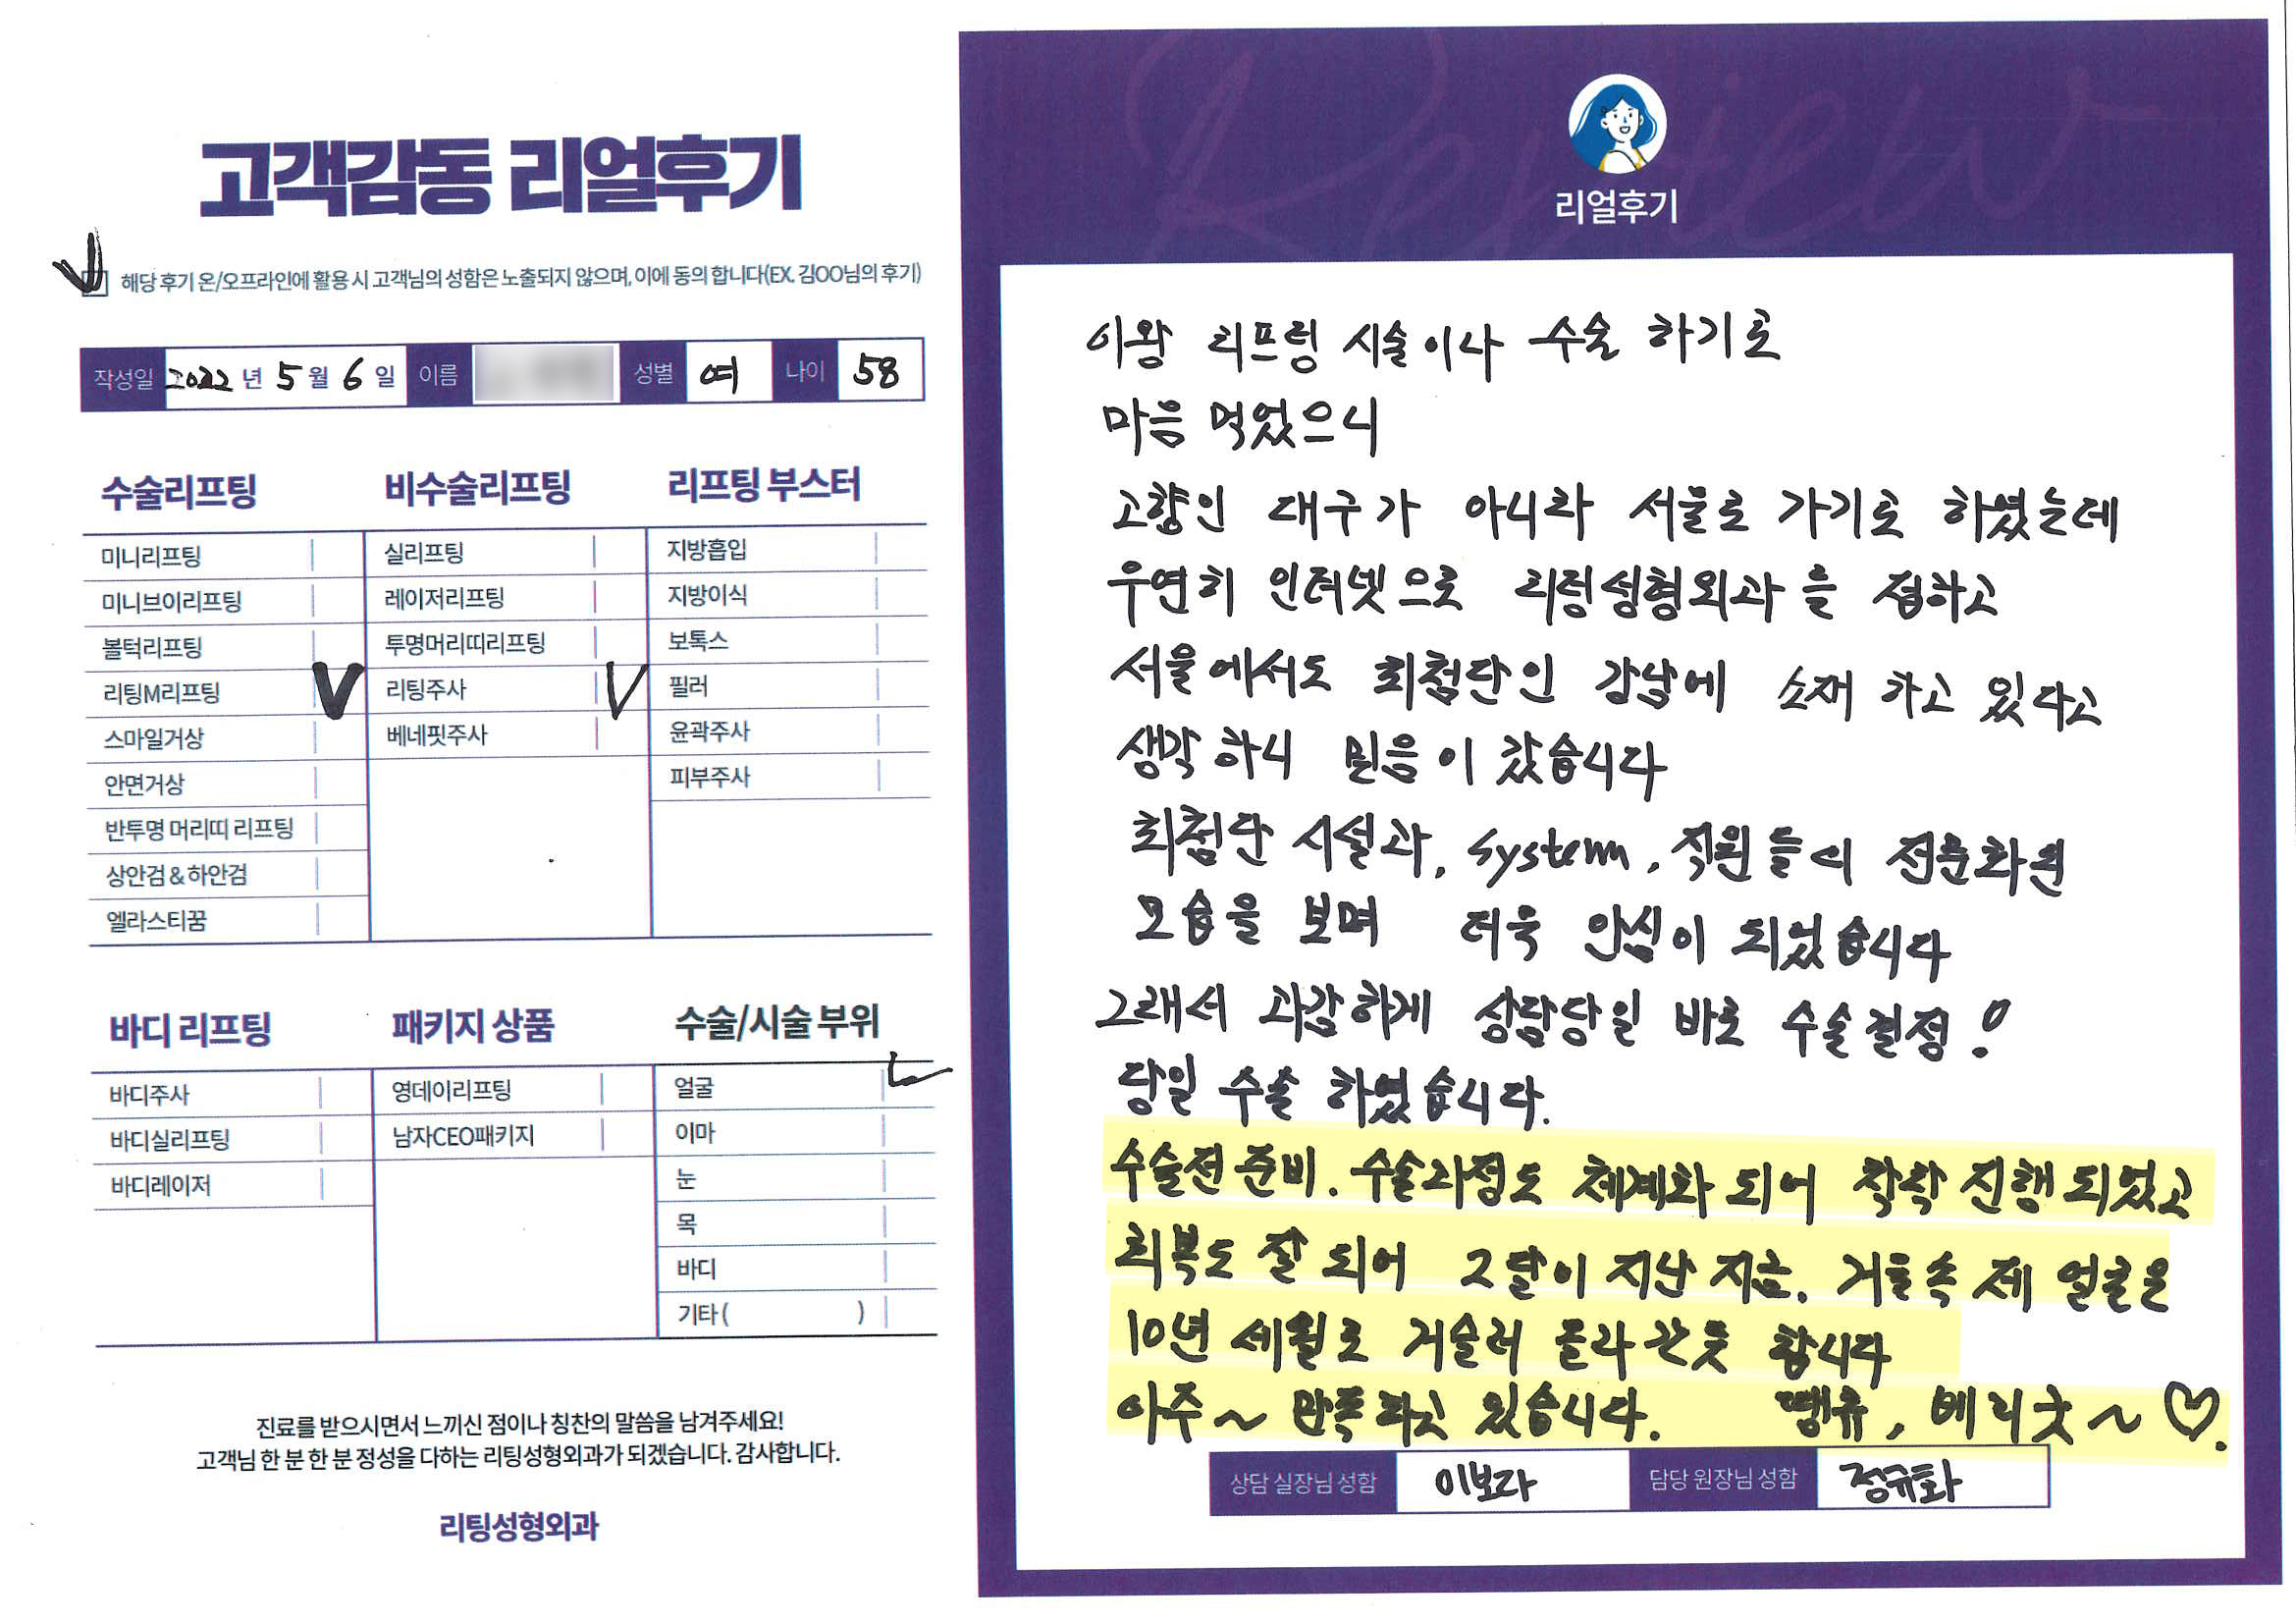 고객감동 리얼후기
해당 후기 온/오프라인에 활용 시 고객님의 성함은 노출되지 않으며, 이에 동의 합니다(EX. 김OO님의 후기)
작성일 2022 년 5 월 6 일 이름 성별 여 나이 58
수술리프팅
미니리프팅
미니브이리프팅
볼턱리프팅
리팅M리프팅 V
스마일거상
안면거상
반투명 머리띠 리프팅
상안검 & 하안검
엘라스티꿈
비수술리프팅
실리프팅
레이저리프팅
투명머리띠리프팅
리팅주사 V
베네핏주사
리프팅 부스터
지방흡입
지방이식
보톡스
필러
윤곽주사
피부주사
바디 리프팅
바디주사
바디실리프팅
바디레이저
패키지 상품
영데이리프팅
남자CEO패키지
수술/시술 부위
얼굴
이마
눈
목
바디
기타 ( )
진료를 받으시면서 느끼신 점이나 칭찬의 말씀을 남겨주세요!
고객님 한 분 한 분 정성을 다하는 리팅성형외과가 되겠습니다. 감사합니다.
리팅성형외과
Review
리얼후기
이왕 리프팅 시술이나 수술 하기로
마음 먹었으니
고향인 대구가 아니라 서울로 가기로 하였는데
우연히 인터넷으로 리팅성형외과를 접하고
서울에서도 최첨단인 강남에 소재 하고 있다고
생각하니 믿음이 갔습니다
최첨단 시설과, system, 직원들의 전문화된
모습을 보며 더욱 안심이 되었습니다
그래서 과감하게 상담당일 바로 수술결정!
당일 수술 하였습니다.
수술전 준비. 수술과정도 체계화 되어 착착 진행되었고
회복도 잘 되어 2달이 지난 지금. 거울속 제 얼굴은
10년 세월로 거슬러 올라 간듯 합니다
아주~ 만족하고 있습니다. 땡큐, 베리굿~ ♡.
상담 실장님 성함 이보라 담당 원장님 성함 정규화